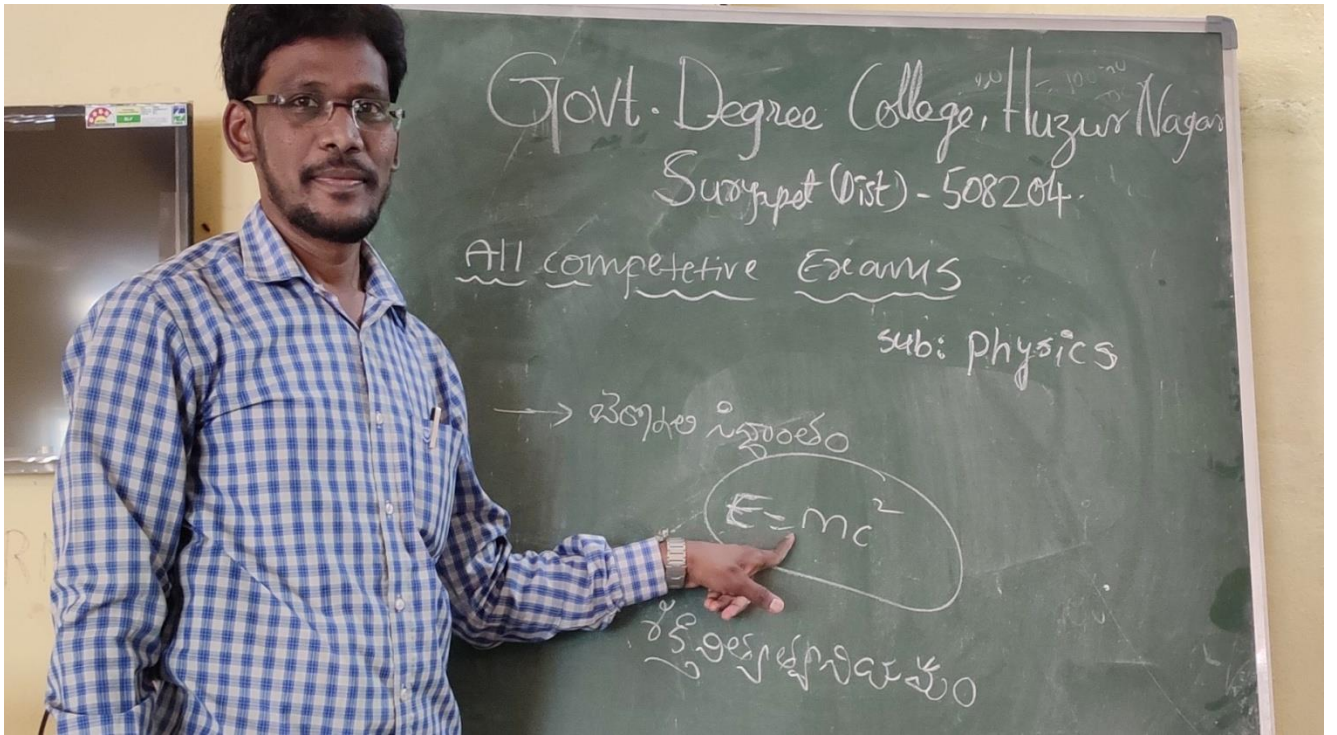 Govt. Degree College, Huzur Nagar
Suryapet (Dist) - 508204.
All competetive Exams
sub: physics
→ సిద్ధాంతం
E=mc²
నిత్యత్వ నియమం